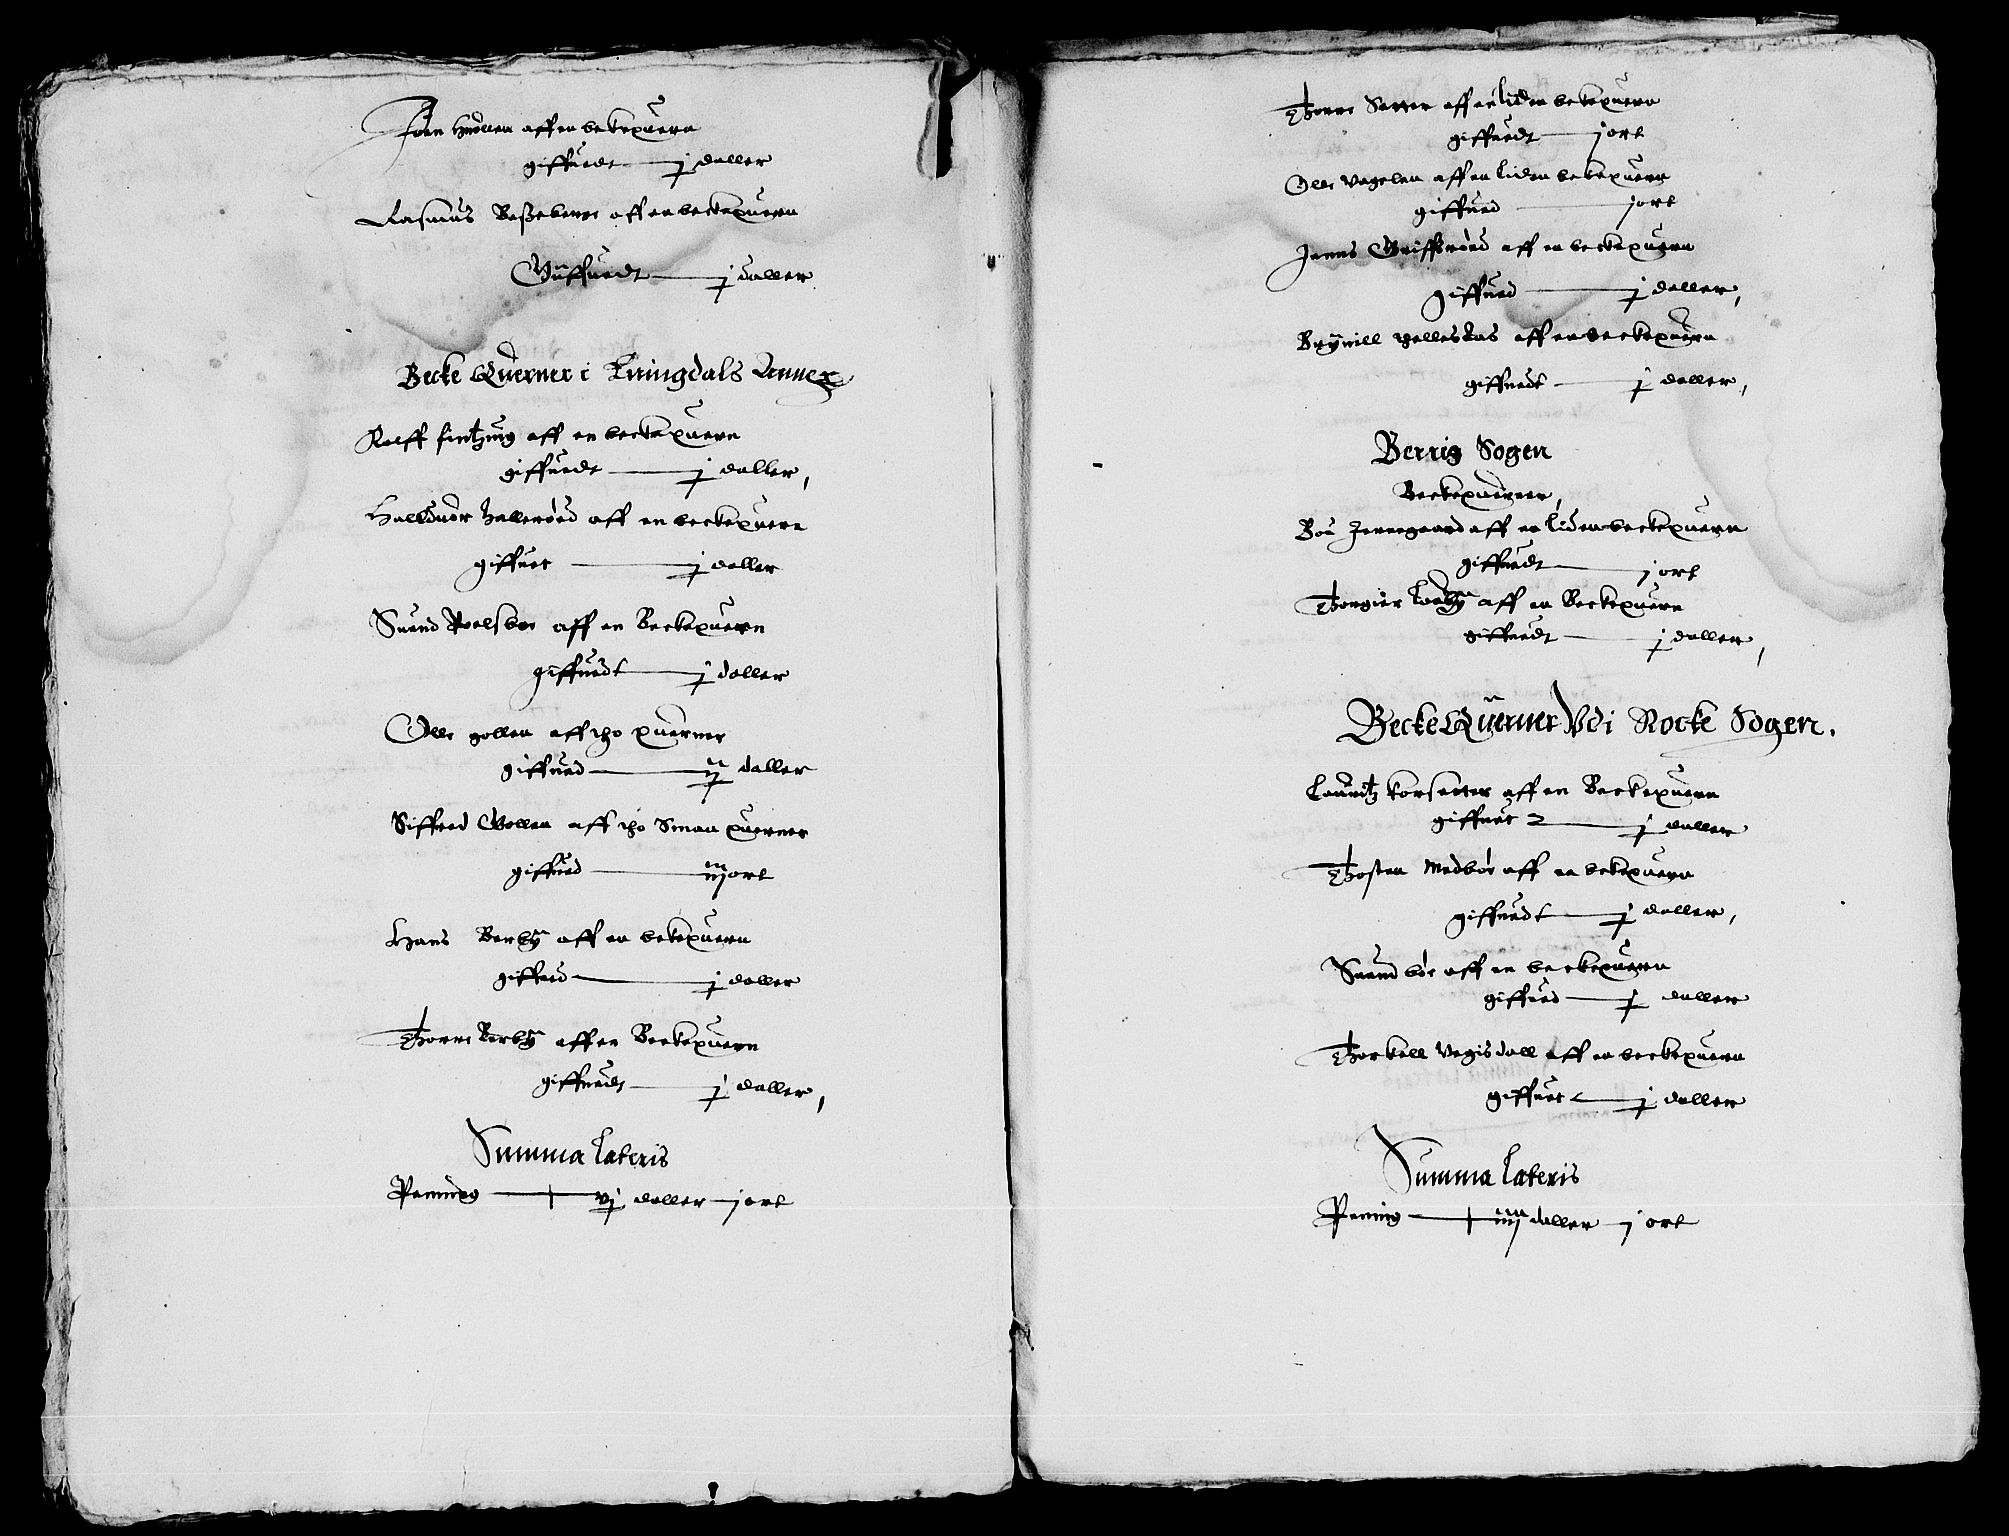 Joen Huollen aff en bekequern
giffuedt — j daller
Rasmus aff en beckequern
Giffuedt — j daller
Becke Querner i Kringdals Annex
Rolff aff en beckequern
giffuedt — j daller,
Halduor Hallerød aff en beckequern
giffuet — j daller
Suend Roelsbør aff en Beckequern
giffuedt — j daller
Olle gollen aff tho querner
giffued — ij daller
Siffued Gollen aff tho Smaa querner
giffued — iij ort
Hans Berby aff en bekequern
giffued — j daller
Thorre Berby aff en Beckequern
giffuedt — j daller,
Summa Lateris
Penning — vj daller — j ort
Thorre Setter aff en liden bekequern
giffuedt — j ort
Olle aff en liden bekequern
giffued — j ort
Jenns aff en beckequern
giffued — j daller,
aff en beckequern
giffuedt — j daller,
Berrig Sogen
Beckequerner,
Bou aff en liden beckequern
giffuedt — j ort
Thorgier Lundby aff en Beckequern
giffuedt — j daller,
Becke Querner Vdi Rocke Sogen.
Lauritz korsetter aff en Beckequern
giffuet — j daller
Thosten Medbøe aff en bekequern
giffuedt — j daller,
Suend bøe aff en beckequern
giffued — j daller
Thorkell Vegisdall aff en beckequern
giffuet — j daller
Summa Lateris
Pening — daller — j ort